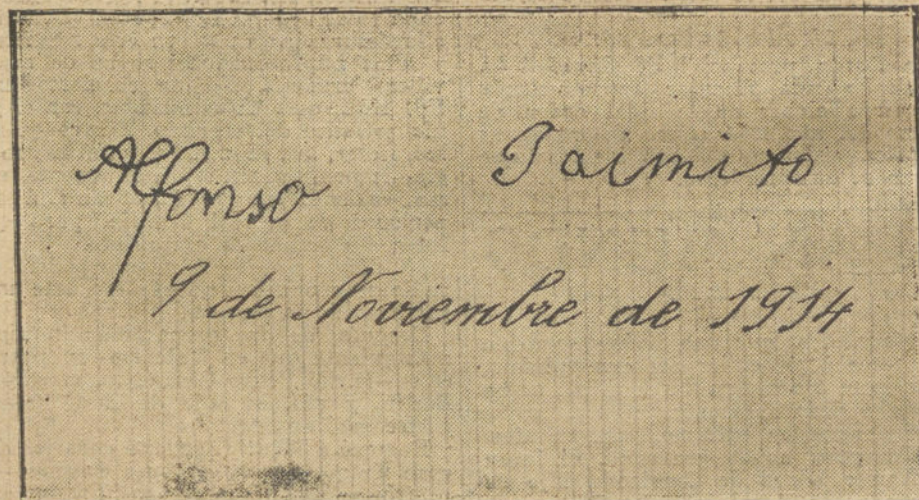 Alfonso Jaimito
9 de Noviembre de 1914